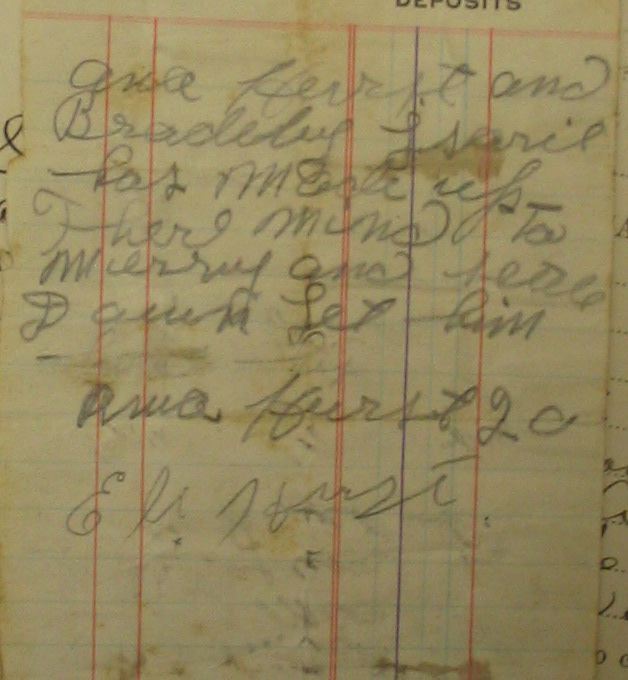 DEPOSITS
ana Hurst and
Bradely Isarie
has Made up
There Mind to
Merry and
Down Let him
ana Hurst 20
E H. Hurst.